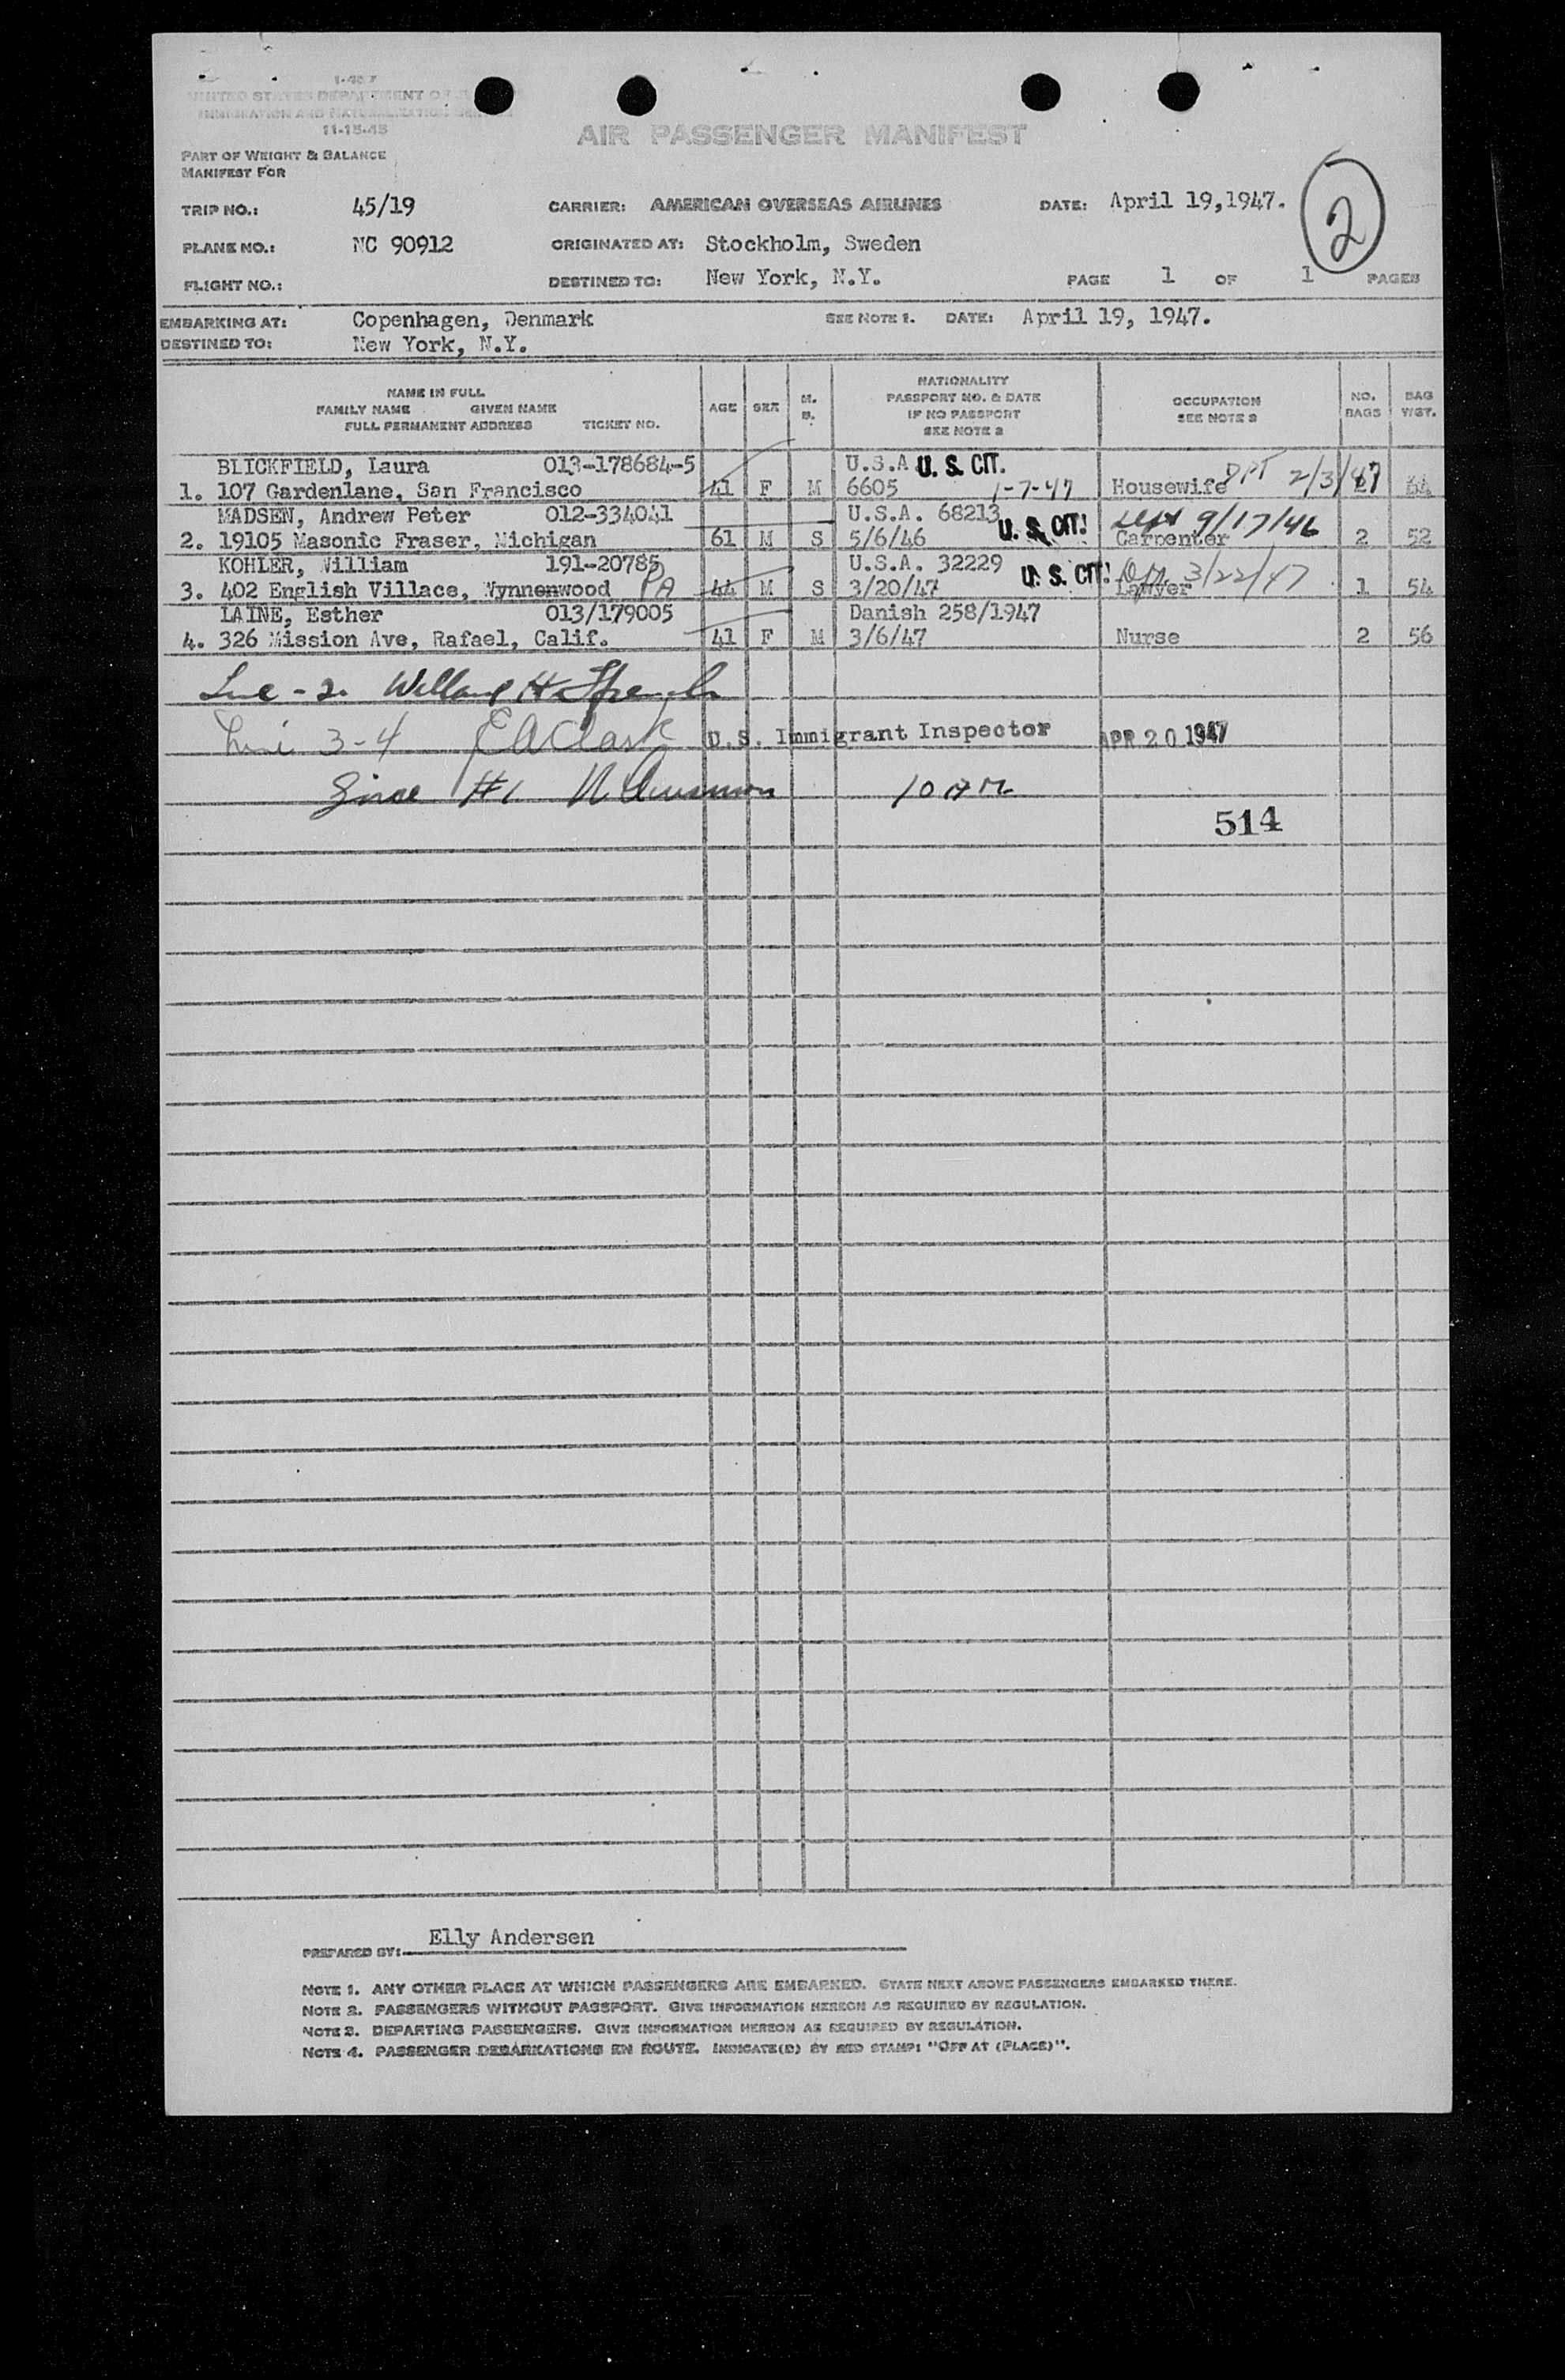 I-457
UNITED STATES DEPARTMENT OF
IMMIGRATION AND NATURALIZATION
11-15-45
AIR PASSENGER MANIFEST
PART OF WEIGHT & BALANCE
MANIFEST FOR
TRIP NO.: 45/19 CARRIER: AMERICAN OVERSEAS AIRLINES DATE: April 19,1947. 2
PLANE NO.: NC 90912 ORIGINATED AT: Stockholm, Sweden
FLIGHT NO.: DESTINED TO: New York, N.Y. PAGE 1 OF 1 PAGES
EMBARKING AT: Copenhagen, Denmark SEE NOTE 1. DATE: April 19, 1947.
DESTINED TO: New York, N.Y.
NAME IN FULL
FAMILY NAME GIVEN NAME
FULL PERMANENT ADDRESS TICKET NO.
AGE SEX M. S.
NATIONALITY
PASSPORT NO. & DATE
IF NO PASSPORT
SEE NOTE 2
OCCUPATION
SEE NOTE 3
NO. BAGS
BAG WGT.
BLICKFIELD, Laura 013-178684-5 U.S.A U.S. CIT.
1. 107 Gardenlane, San Francisco 41 F M 6605 1-7-47 Housewife DPT 2/3/47
MADSEN, Andrew Peter 012-334041 U.S.A. 68213 U.S. CIT. Left 9/17/46
2. 19105 Masonic Fraser, Michigan 61 M S 5/6/46 Carpenter 2 52
KOHLER, William 191-20785 U.S.A. 32229 U.S. CIT. 3/22/47
3. 402 English Villace, Wynnenwood PA 44 M S 3/20/47 Lawyer 1 54
LAINE, Esther 013/179005 Danish 258/1947
4. 326 Mission Ave, Rafael, Calif. 41 F M 3/6/47 Nurse 2 56
- 2. H.
3-4 E A Clark U.S. Immigrant Inspector APR 20 1947
#1 10 AM
514
PREPARED BY: Elly Andersen
NOTE 1. ANY OTHER PLACE AT WHICH PASSENGERS ARE EMBARKED. STATE NEXT ABOVE PASSENGERS EMBARKED THERE.
NOTE 2. PASSENGERS WITHOUT PASSPORT. GIVE INFORMATION HEREON AS REQUIRED BY REGULATION.
NOTE 3. DEPARTING PASSENGERS. GIVE INFORMATION HEREON AS REQUIRED BY REGULATION.
NOTE 4. PASSENGER DEBARKATIONS EN ROUTE. INDICATE(D) BY RED STAMP: "OFF AT (PLACE)".